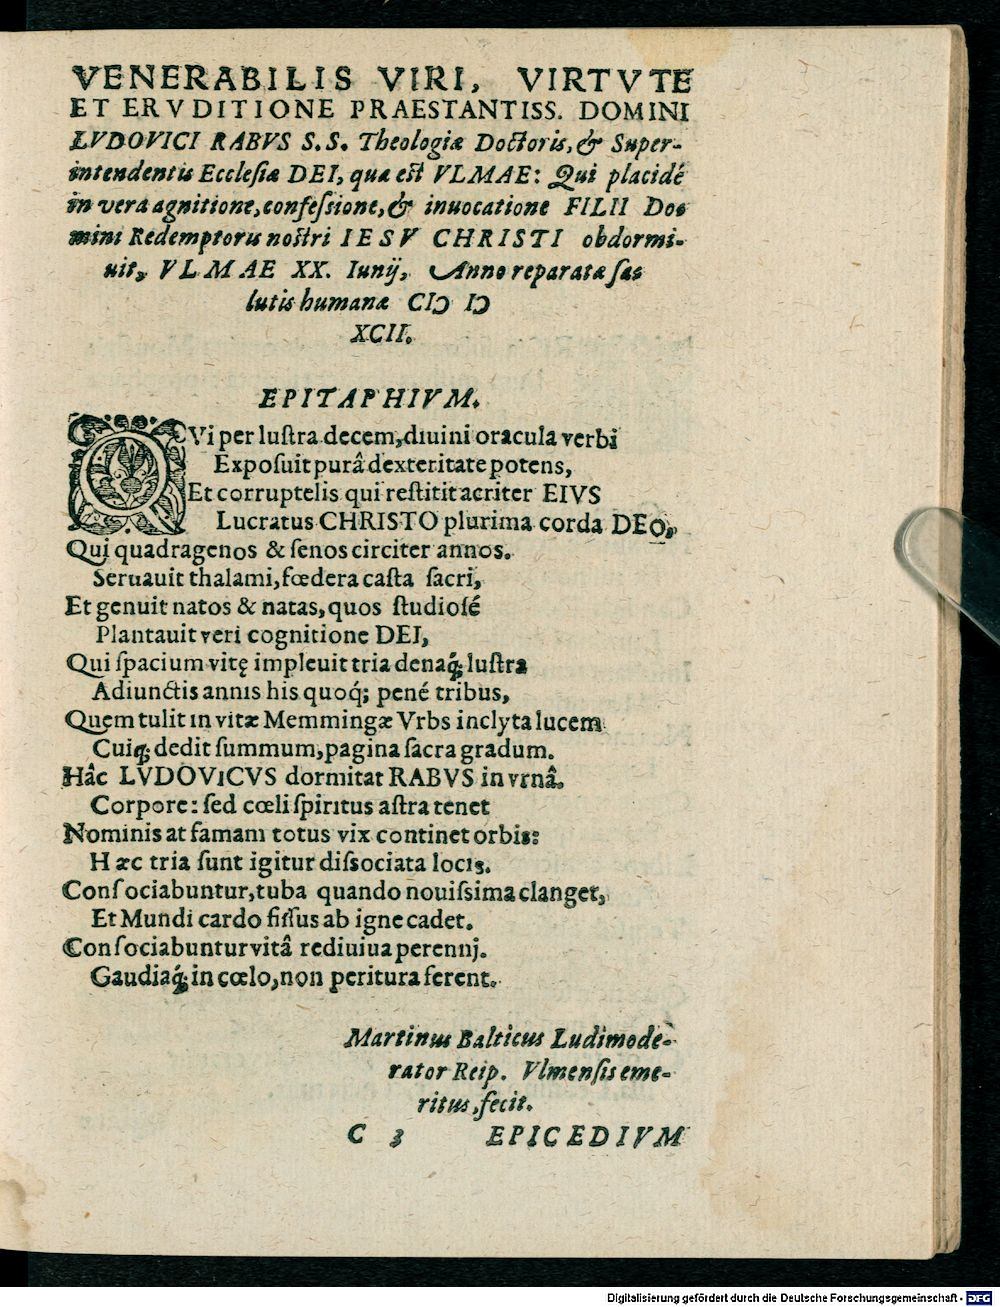 VENERABILIS VIRI, VIRTVTE
ET ERVDITIONE PRAESTANTISS. DOMINI
LVDOVICI RABVS S.S. Theologiæ Doctoris, & Super-
intendentis Ecclesiæ DEI, quæ est VLMAE: Qui placidé
in vera agnitione, confeſsione, & inuocatione FILII Do-
mini Redemptoris nostri IESV CHRISTI obdormi-
uit, VLMAE XX. Iunij, Anno reparatæ ſa-
lutis humanæ CIↃ IↃ
XCII.
EPITAPHIVM.
QVi per luſtra decem, diuini oracula verbi
Expoſuit purâ dexteritate potens,
Et corruptelis qui reſtitit acriter EIVS
Lucratus CHRISTO plurima corda DEO,
Qui quadragenos & ſenos circiter annos.
Seruauit thalami, fœdera caſta ſacri,
Et genuit natos & natas, quos ſtudioſé
Plantauit veri cognitione DEI,
Qui ſpacium vitę impleuit tria denaq́; luſtra
Adiunctis annis his quoq́; pené tribus,
Quem tulit in vitæ Memmingæ Vrbs inclyta lucem
Cuiq́; dedit ſummum, pagina ſacra gradum.
Hâc LVDOVICVS dormitat RABVS in vrnâ.
Corpore: ſed cœli ſpiritus aſtra tenet
Nominis at famam totus vix continet orbis:
Hæc tria ſunt igitur diſsociata locis.
Conſociabuntur, tuba quando nouiſsima clanget,
Et Mundi cardo fiſſus ab igne cadet.
Conſociabuntur vitâ rediuiua perennj.
Gaudiaq́; in cœlo, non peritura ferent.
Martinus Balticus Ludimode-
rator Reip. Vlmenſis eme-
ritus, fecit.
C 3 EPICEDIVM
Digitalisierung gefördert durch die Deutsche Forschungsgemeinschaft - DFG